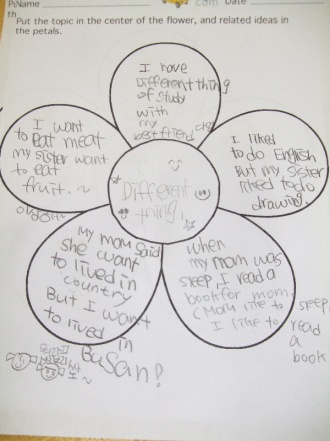 Name
com Date
Put the topic in the center of the flower, and related ideas in
the petals.
I have
Different thing
of study
with
my
best friend
I want
to eat meat
my sister want
to eat
fruit. ~
I liked
to do English
But my sister
liked to do
drawing.
Different
thing!
My mom said
she want
to lived in
country
But I want
to lived in
Busan!
when
my mom was
sleep, I read a
book for mom.
(Mom like to sleep,
I like to read
a
book